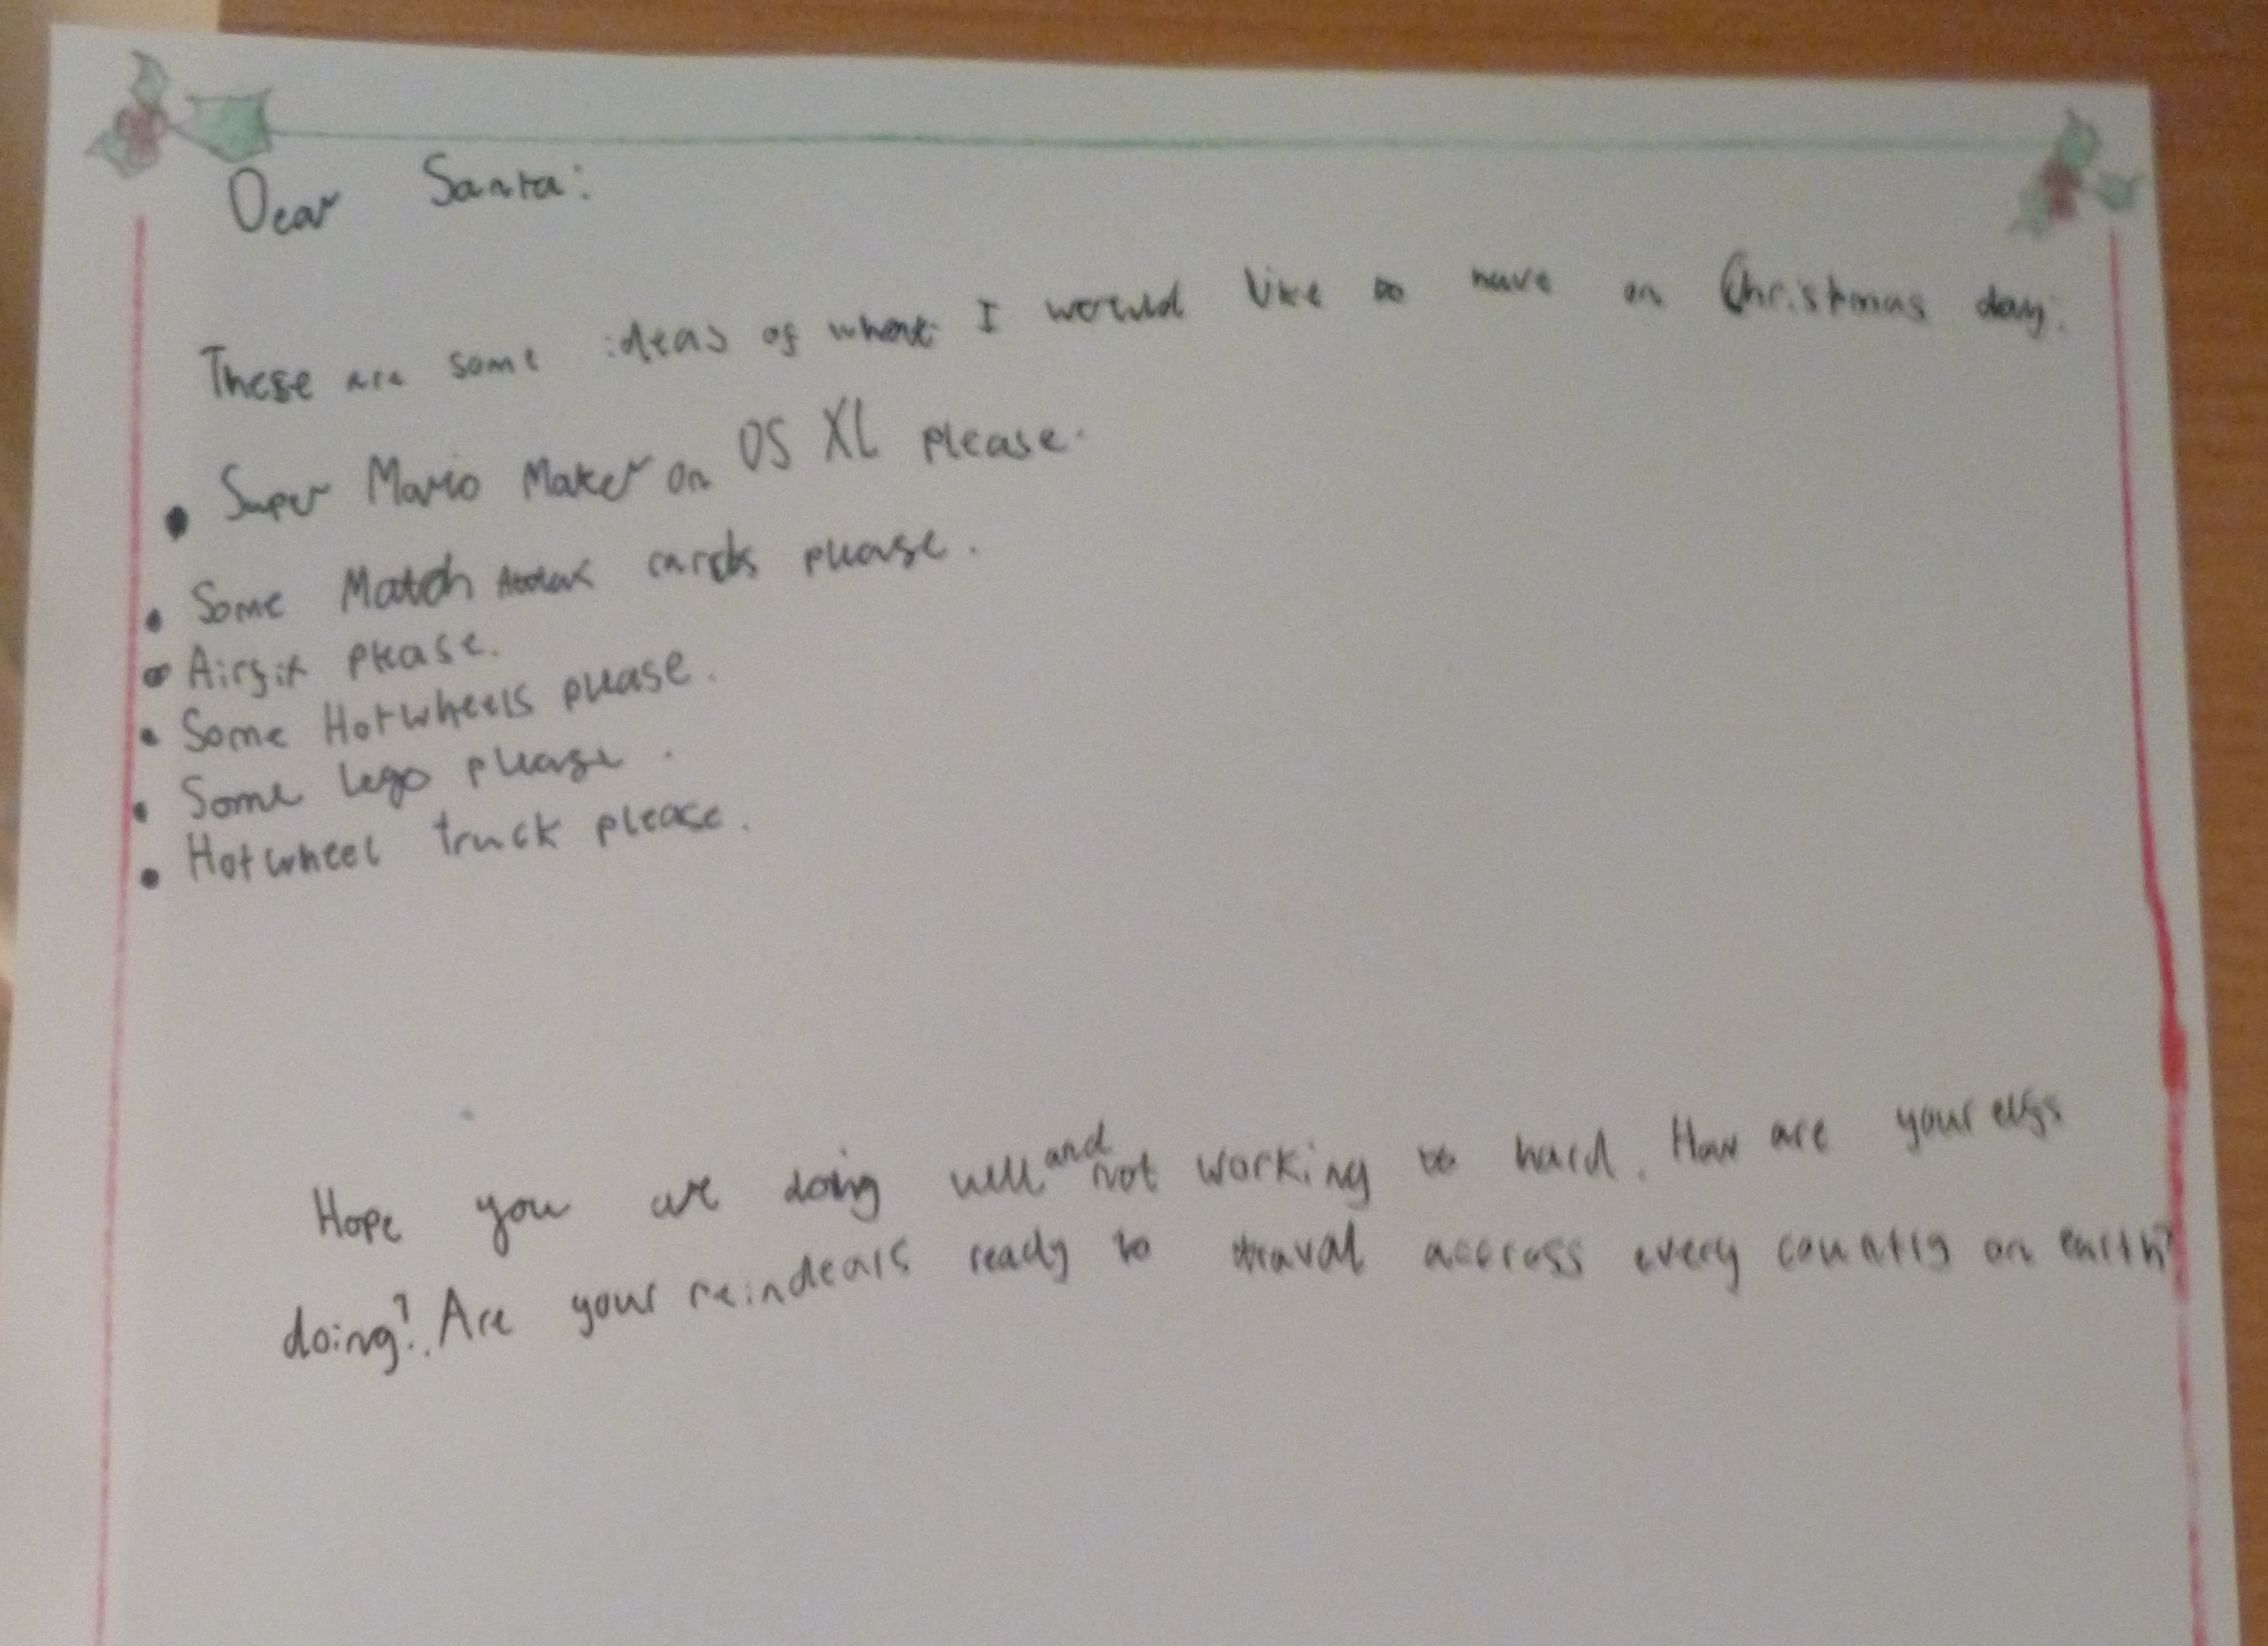 Dear Santa:
These are some ideas of what I would like to have on Christmas day:
• Super Mario Maker on DS XL please.
• Some Match Attax cards please.
• Airfix please.
• Some Hotwheels please.
• Some lego please.
• Hotwheel truck please.
Hope you are doing well and not working to hard. How are your elfs
doing? Are your reindears ready to traval accross every country on earth?